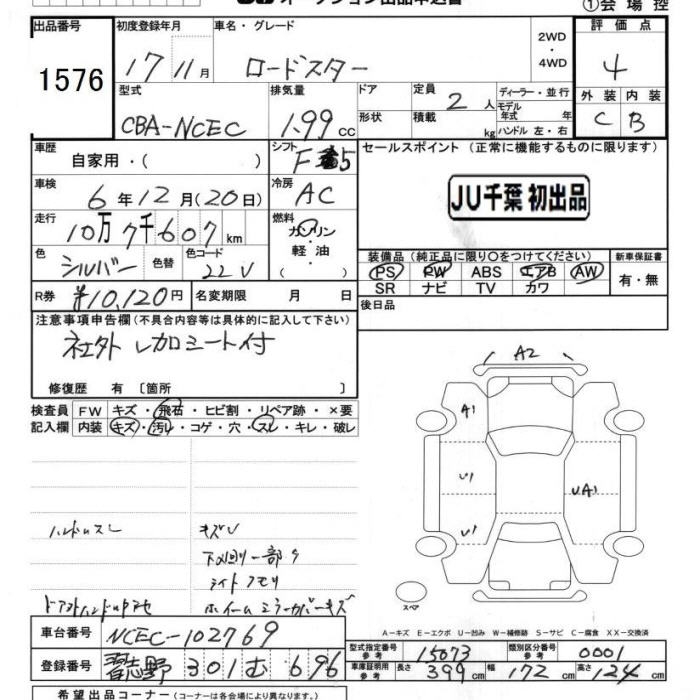 オークション出品申込書
①会場控
出品番号
1576
初度登録年月
17 11月
車名・グレード
ロードスター
2WD
・
4WD
評価点
4
外装 内装
C B
型式
CBA-NCEC
排気量
1.99 cc
ドア
形状
定員
2 人
積載
kg
ディーラー・並行
モデル年式 年
ハンドル 左・右
車歴
自家用・( )
シフト
F 5
セールスポイント (正常に機能するものに限ります)
JU千葉 初出品
車検
6年12月(20日)
冷房
AC
走行
10万7千607km
燃料
ガソリン
・
軽油
・
( )
色
シルバー
色替
色コード
22V
装備品 (純正品に限り○をつけてください)
PS PW ABS エアB AW
SR ナビ TV カワ
新車保証書
有・無
R券
¥10,120円
名変期限 月 日
後日品
注意事項申告欄 (不具合内容等は具体的に記入して下さい)
社外 レカロシート付
修復歴 有 〔箇所 〕
検査員記入欄
FW キズ・飛石・ヒビ割・リペア跡・×要
内装 キズ・汚れ・コゲ・穴・スレ・キレ・破レ
A2
A1
U1
UA1
U1
スペア
ハンドルスレ
キズU
ライトクモリ
A-キズ E-エクボ U-凹み W-補修跡 S-サビ C-腐食 XX-交換済
車台番号
NCEC-102769
登録番号
習志野 301 む 696
型式指定番号
参考
15073
類別区分番号
参考
0001
車庫証明用
参考
長さ 399cm
幅 172cm
高さ 124cm
希望出品コーナー (コーナーは各会場により異なります。)